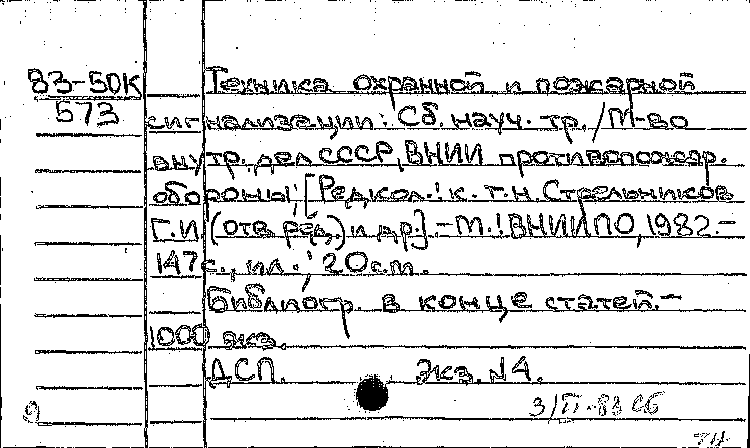 83-50К Техника охранной и пожарной
573 сигнализации: Сб. науч. тр. / М-во
внутр. дел СССР, ВНИИ противопожар.
обороны; [Редкол.: к. т. н. Стрельников
Г.И (отв. ред.) и др.]. - М.: ВНИИПО, 1982. -
147с., ил.; 20см.
Библиогр. в конце статей. -
1000 экз.
ДСП. Экз. N4.
3/II-83 Сб